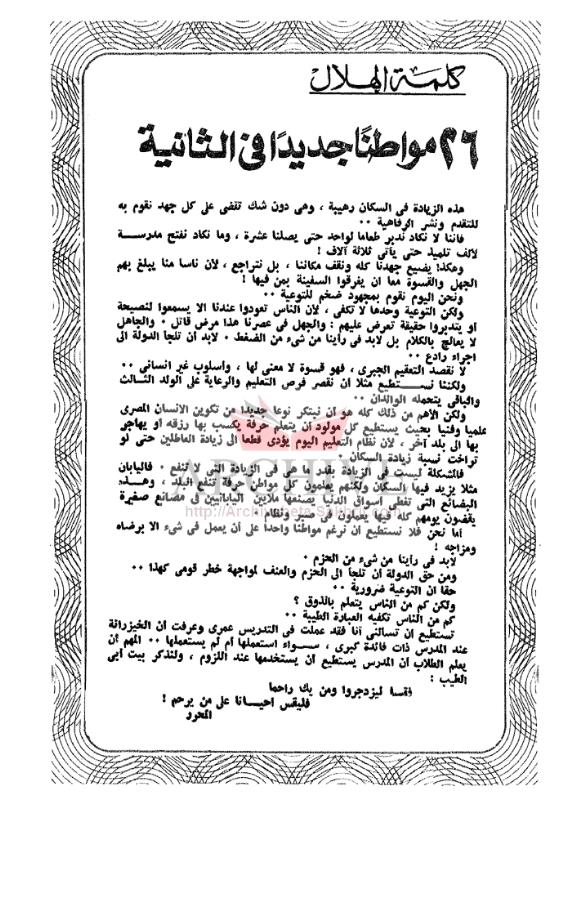 كلمة الهلال
٢٦ مواطنًا جديدًا فى الثانية
هذه الزيادة فى السكان رهيبة ، وهى دون شك تقضى على كل جهد نقوم به
للتقدم ونشر الرفاهية ٠٠
فاننا لا نكاد ندبر طعاما لواحد حتى يصلنا عشرة ، وما نكاد نفتح مدرسة
لألف تلميذ حتى يأتى ثلاثة آلاف !
وهكذا يضيع جهدنا كله ونقف مكاننا ، بل نتراجع ، لأن ناسا منا يبلغ بهم
الجهل والقسوة معا ان يغرقوا السفينة بمن فيها !
ونحن اليوم نقوم بمجهود ضخم للتوعية ٠٠
ولكن التوعية وحدها لا تكفى ، لأن الناس تعودوا عندنا الا يسمعوا لنصيحة
او يتدبروا حقيقة تعرض عليهم : والجهل فى عصرنا هذا مرض قاتل ٠ والجاهل
لا يعالج بالكلام بل لابد فى رأينا من شىء من الضغط ٠ لابد ان تلجأ الدولة الى
اجراء رادع ٠٠
لا نقصد التعقيم الجبرى ، فهو قسوة لا معنى لها ، وأسلوب غير انسانى ٠٠
ولكننا نستطيع مثلا ان نقصر فرص التعليم والرعاية على الولد الثالث
والباقى يتحمله الوالدان ٠٠
ولكن الأهم من ذلك كله هو ان نبتكر نوعا جديدا من تكوين الانسان المصرى
علميا وفنيا بحيث يستطيع كل مولود ان يتعلم حرفة يكسب بها رزقه او يهاجر
بها الى بلد آخر ، لأن نظام التعليم اليوم يؤدى قطعا الى زيادة العاطلين حتى لو
تراخت نسبة زيادة السكان ٠
فالمشكلة ليست فى الزيادة بقدر ما هى فى الزيادة التى لا تنفع ٠ فاليابان
مثلا يزيد فيها السكان ولكنهم يعلمون كل مواطن حرفة تنفع البلد ، وهذه
البضائع التى تغطى أسواق الدنيا يصنعها ملايين اليابانيين فى مصانع صغيرة
يقضون يومهم كله فيها يعملون فى صبر ونظام ٠
أما نحن فلا نستطيع ان نرغم مواطنا واحدا على أن يعمل فى شىء الا برضاه
ومزاجه !
لابد فى رأينا من شىء من الحزم ٠
ومن حق الدولة أن تلجأ الى الحزم والعنف لمواجهة خطر قومى كهذا ٠٠
حقا ان التوعية ضرورية ٠٠
ولكن كم من الناس يتعلم بالذوق ؟
كم من الناس تكفيه العبارة الطيبة ٠٠
تستطيع ان تسألنى أنا فقد عملت فى التدريس عمرى وعرفت ان الخيزرانة
عند المدرس ذات فائدة كبرى ، سواء استعملها أم لم يستعملها ٠٠ المهم أن
يعلم الطلاب أن المدرس يستطيع أن يستخدمها عند اللزوم ، ولنذكر بيت أبى
الطيب :
فقسا ليزدجروا ومن يك راحما
فليقس أحيانا على من يرحم !
المحرر
ARCHIVE
http://Archivebeta.Sakhrit.com